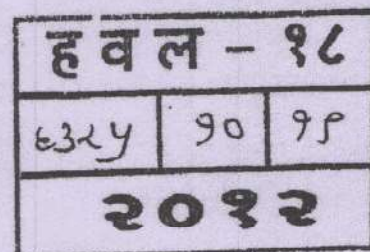 हवल - १८
६३२५ १० १९
२०१२